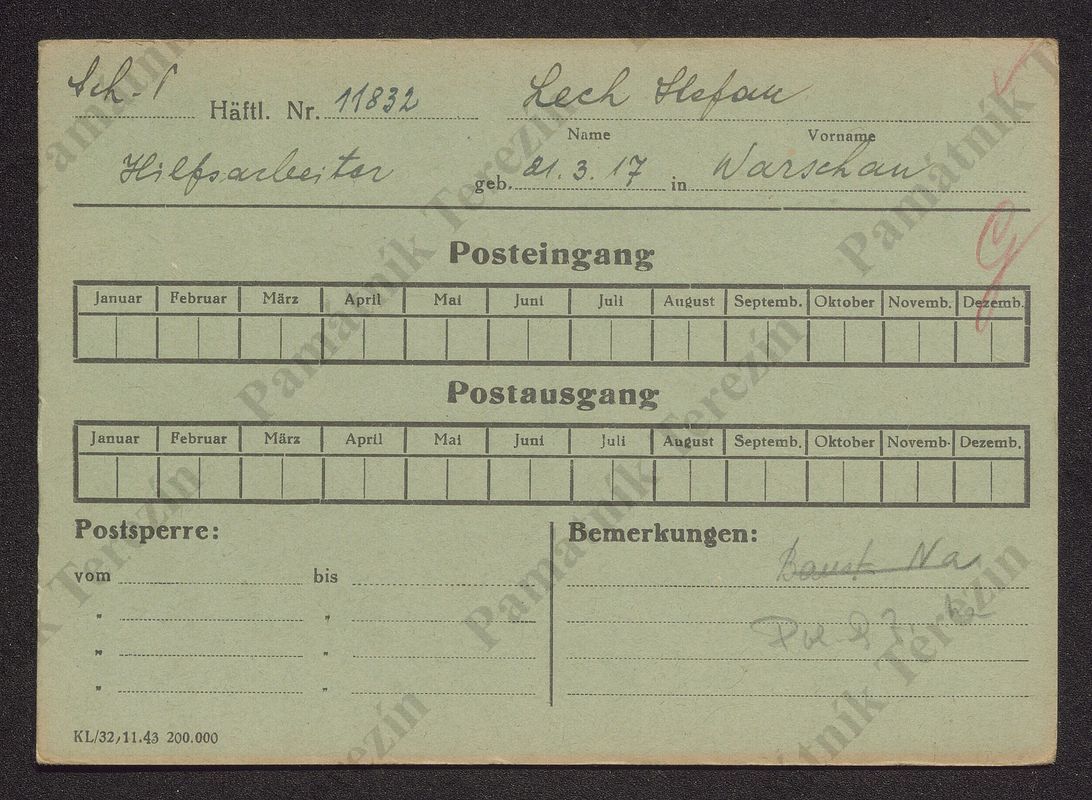 Sch. P
Häftl. Nr. 11832
Lech Stefan
Name Vorname
Hilfsarbeiter geb. 21. 3. 17 in Warschau
Posteingang
Januar Februar März April Mai Juni Juli August Septemb. Oktober Novemb. Dezemb.
Postausgang
Januar Februar März April Mai Juni Juli August Septemb. Oktober Novemb. Dezemb.
Postsperre:
Bemerkungen:
vom bis
" "
" "
" "
KL/32, 11.43 200.000
Památník Terezín